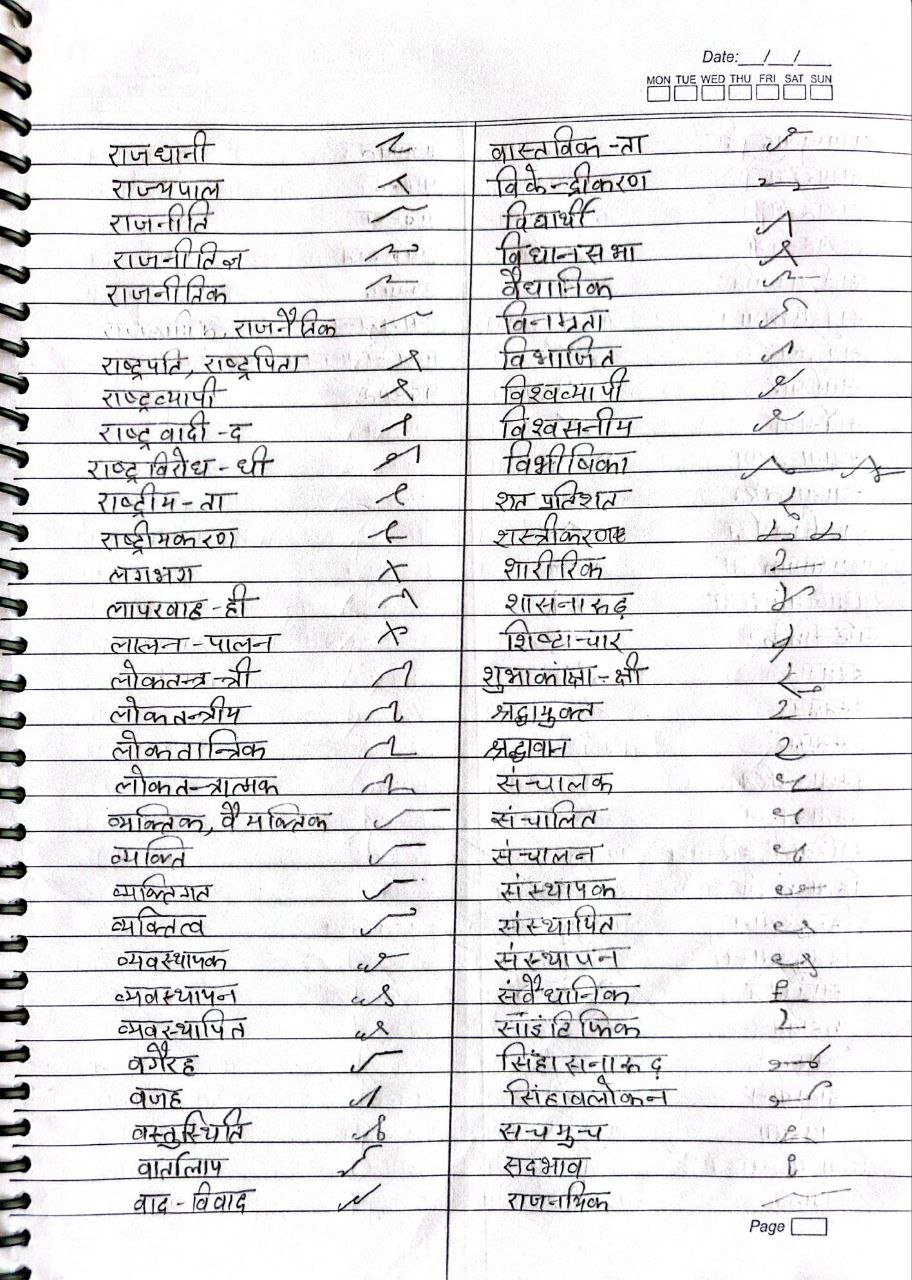 Date:__/__/__
MON TUE WED THU FRI SAT SUN
राजधानी
राज्यपाल
राजनीति
राजनीतिज्ञ
राजनीतिक
, राजनैतिक
राष्ट्रपति, राष्ट्रपिता
राष्ट्रव्यापी
राष्ट्रवादी -द
राष्ट्र विरोध - धी
राष्ट्रीय - ता
राष्ट्रीयकरण
लगभग
लापरवाह - ही
लालन - पालन
लोकतन्त्र -न्त्री
लोकतन्त्रीय
लोकतान्त्रिक
लोकतन्त्रात्मक
व्यक्तिक, वैयक्तिक
व्यक्ति
व्यक्तिगत
व्यक्तित्व
व्यवस्थापक
व्यवस्थापन
व्यवस्थापित
वगैरह
वजह
वस्तुस्थिति
वार्तालाप
वाद - विवाद
वास्तविक -ता
विकेन्द्रीकरण
विद्यार्थी
विधानसभा
वैधानिक
विनम्रता
विभाजित
विश्वव्यापी
विश्वसनीय
विभीषिका
शत प्रतिशत
शस्त्रीकरण
शारीरिक
शासनारूढ़
शिष्टाचार
शुभाकांक्षा - क्षी
श्रद्धायुक्त
श्रद्धावान
संचालक
संचालित
संचालन
संस्थापक
संस्थापित
संस्थापन
संवैधानिक
साइंटिफिक
सिंहासनारूढ़
सिंहावलोकन
सचमुच
सदभाव
राजनयिक
Page